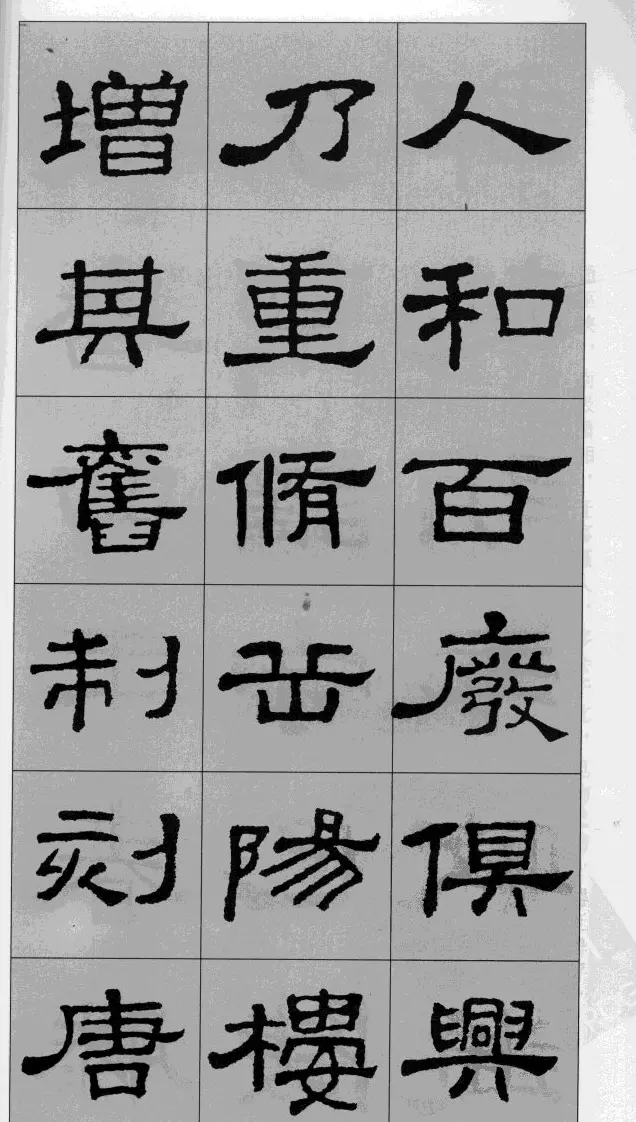 人和百廢俱興
乃重脩岳陽樓
增其舊制刻唐